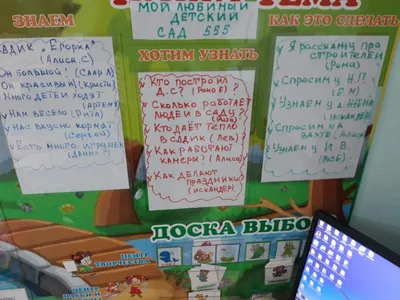 ТЕМА
МОЙ ЛЮБИМЫЙ
ДЕТСКИЙ
САД 555
ЗНАЕМ
САДИК "ЕГОРКА"
(АЛИСА.С)
Он большой!
Он красивый
Много детей ходят
(АРТЕМ)
Нам весело (РИТА)
Нас вкусно кормят
(Сергей)
Есть много игрушек
ХОТИМ УЗНАТЬ
Кто построил
Д.С? (РОМА Е)
Сколько работает
людей в саду?
Кто даёт тепло
в садик (ЛЕВ)
Как работают
камеры? (АЛИСА)
Как делают
праздники
(ИСКАНДЕР)
КАК ЭТО СДЕЛАТЬ
Я расскажу про
строителей
(РОМА)
Спросим у Н.П.
Узнаем у
(ИСКАНДЕР)
Спросим на
вахте (АЛИСА)
Узнаем у И.В.
ДОСКА ВЫБО
ЦЕНТР
ТВОРЧЕСТВА
ЦЕНТР
НАУКИ И